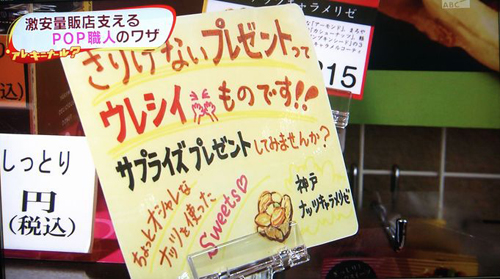 激安量販店支える
POP職人のワザ
アレ・キナール?
ABC
さりげないプレゼントって
ウレシイものです!!
サプライズプレゼントしてみませんか?
ちょっとオシャレな
ナッツを使った
Sweets♡
神戸
ナッツキャラメリゼ
しっとり
円
(税込)
ャラメリゼ
215